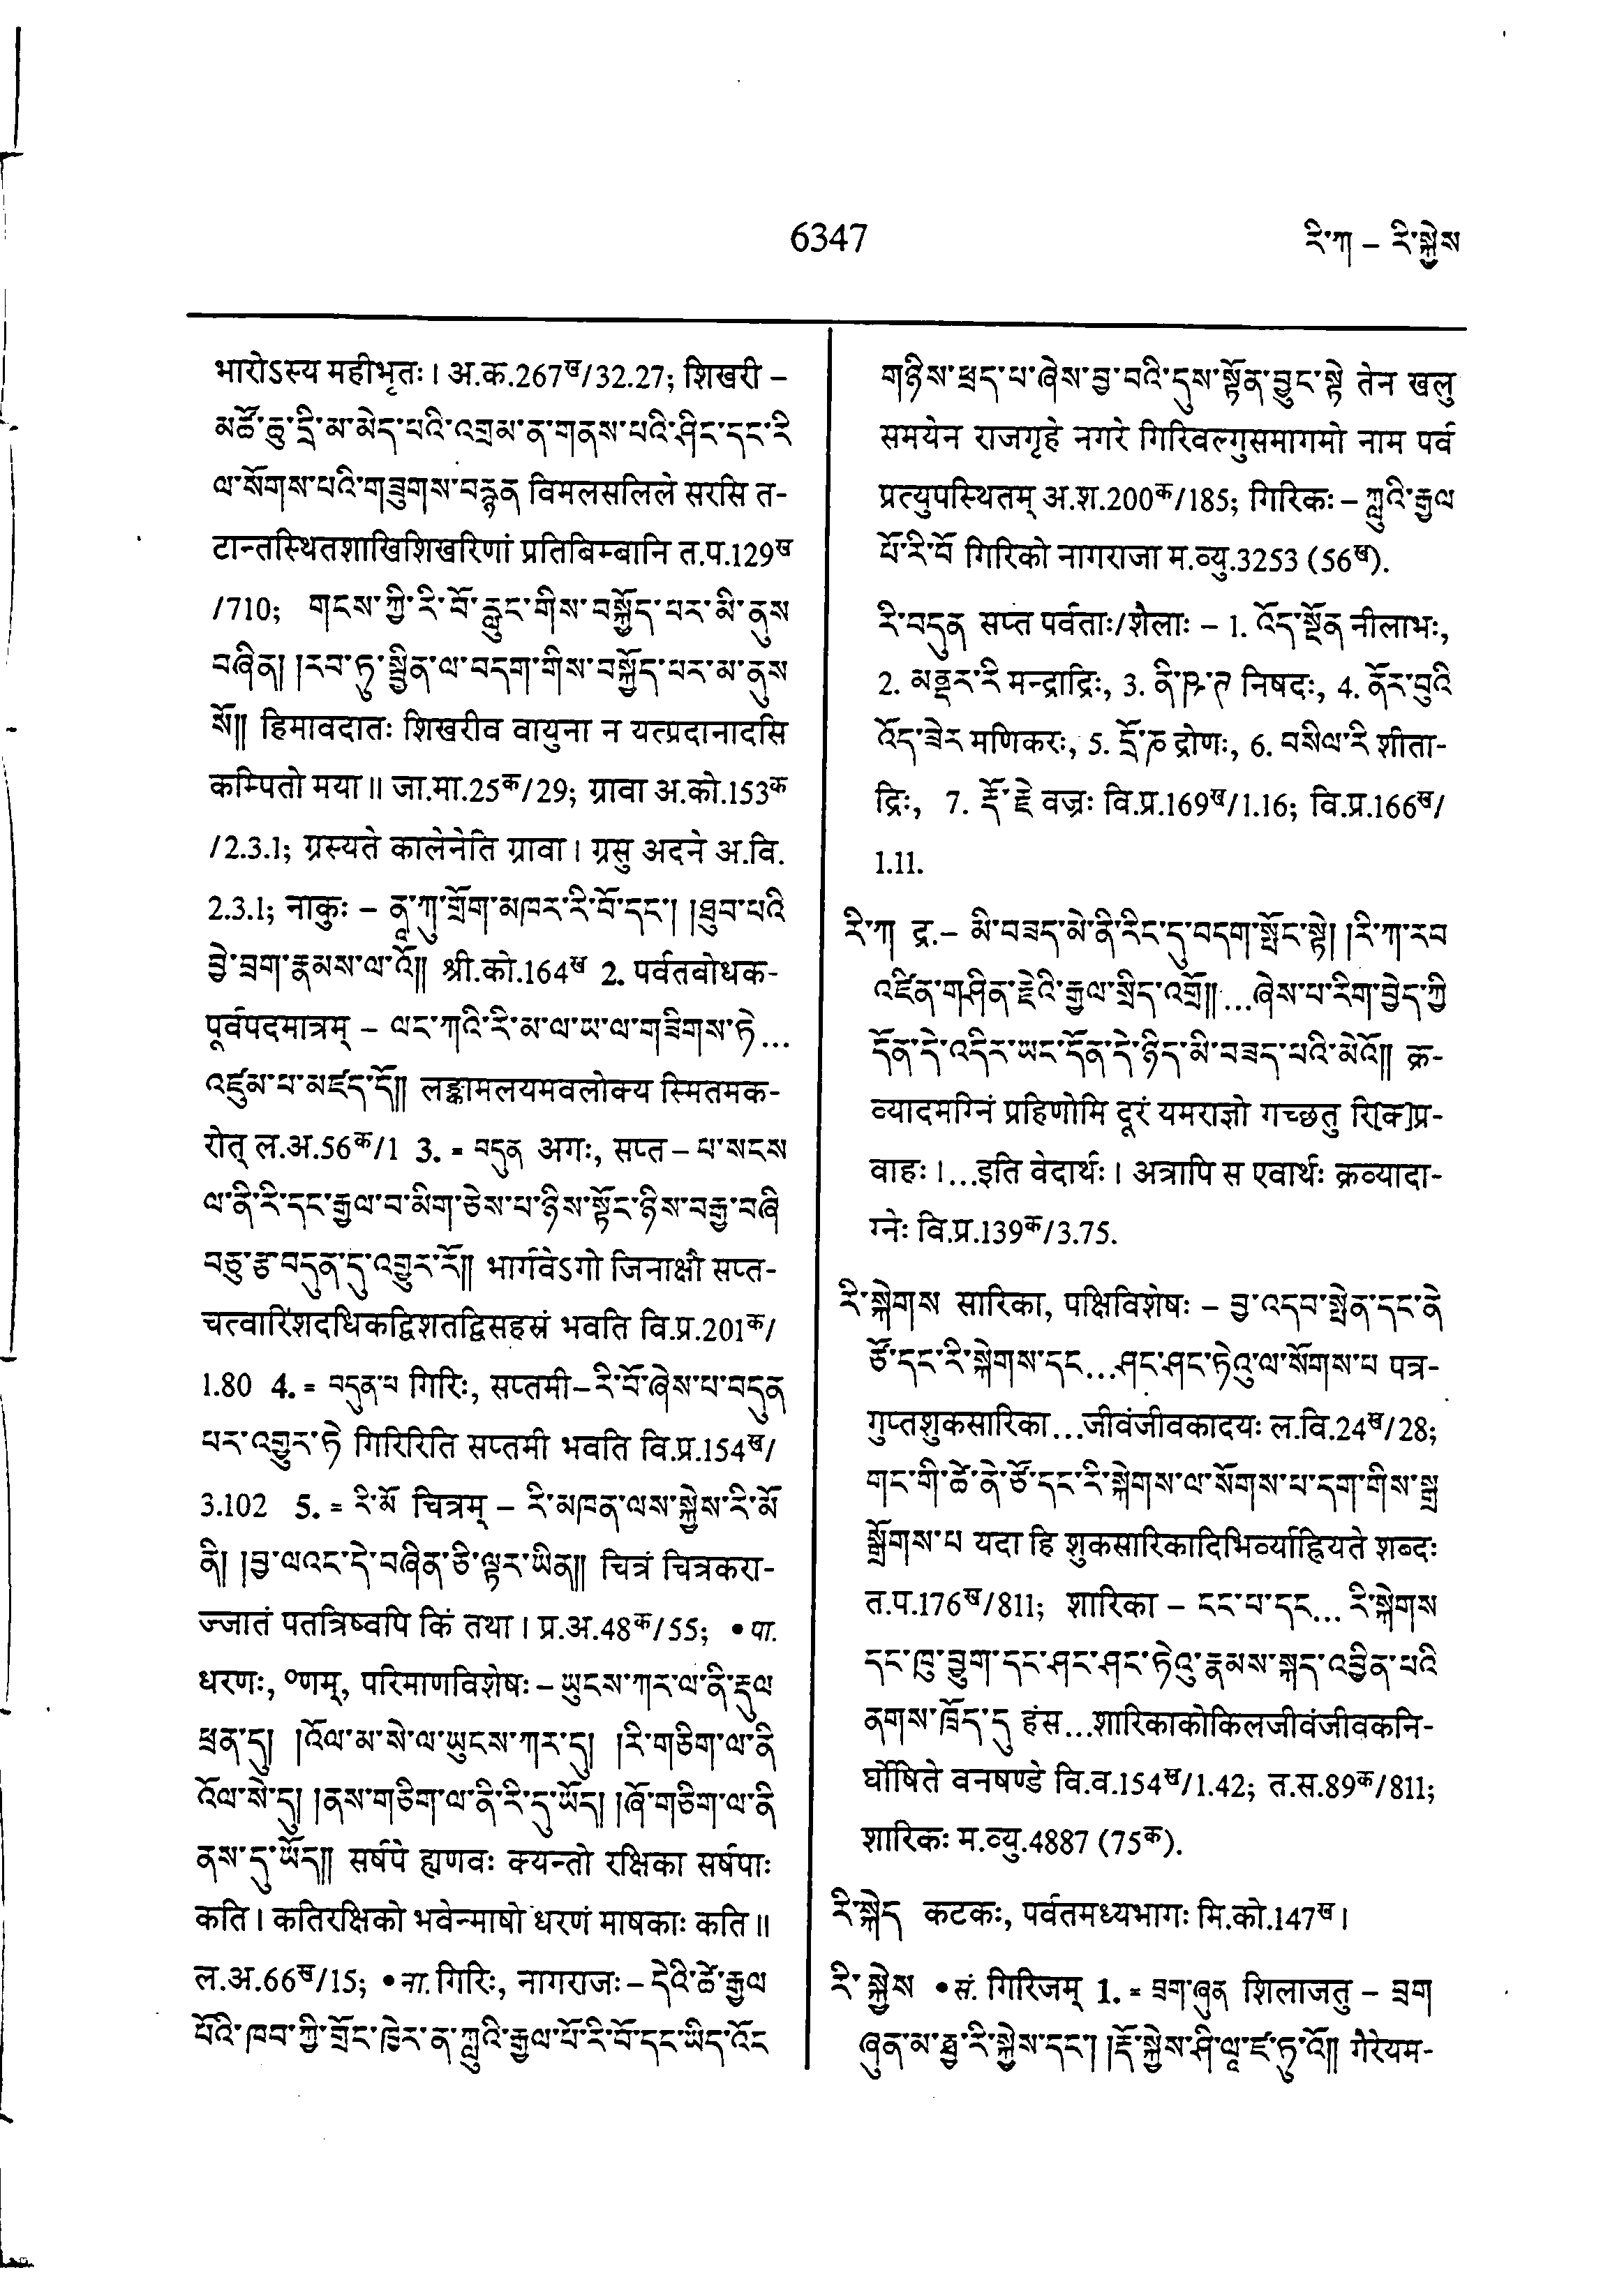 6347
རི་ཀ – རི་སྐྱེས
भारोऽस्य महीभृतः । अ.क.267ख/32.27; शिखरी –
མཚོ་ཆུ་དྲི་མ་མེད་པའི་འགྲམ་ན་གནས་པའི་ཤིང་དང་རི
ལ་སོགས་པའི་གཟུགས་བརྙན विमलसलिले सरसि त-
टान्तस्थितशाखिशिखरिणां प्रतिबिम्बानि त.प.129ख
/710; གངས་ཀྱི་རི་བོ་རླུང་གིས་བསྐྱོད་པར་མི་ནུས
བཞིན། །རབ་ཏུ་སྦྱིན་ལ་བདག་གིས་བསྐྱོད་པར་མ་ནུས
སོ།། हिमावदातः शिखरीव वायुना न यत्प्रदानादसि
कम्पितो मया ॥ जा.मा.25क/29; ग्रावा अ.को.153क
/2.3.1; ग्रस्यते कालेनेति ग्रावा । ग्रसु अदने अ.वि.
2.3.1; नाकुः – ནཱ་ཀུ་གྲོག་མཁར་རི་བོ་དང་། །ཐུབ་པའི
བྱེ་བྲག་རྣམས་ལ་འོ།། श्री.को.164ख 2. पर्वतबोधक-
पूर्वपदमात्रम् – ལང་ཀའི་རི་མ་ལ་ཡ་ལ་གཟིགས་ཏེ...
འཛུམ་པ་མཛད་དོ།། लङ्कामलयमवलोक्य स्मितमक-
रोत् ल.अ.56क/1 3. = བདུན अगः, सप्त – པ་སངས
ལ་ནི་རི་དང་རྒྱལ་བ་མིག་ཅེས་པ་ཉིས་སྟོང་ཉིས་བརྒྱ་བཞི
བཅུ་རྩ་བདུན་དུ་འགྱུར་རོ།། भार्गवेऽगो जिनाक्षी सप्त-
चत्वारिंशदधिकद्विशतद्विसहस्रं भवति वि.प्र.201क/
1.80 4. = བདུན་པ गिरिः, सप्तमी – རི་བོ་ཞེས་པ་བདུན
པར་འགྱུར་ཏེ गिरिरिति सप्तमी भवति वि.प्र.154ख/
3.102 5. = རི་མོ चित्रम् – རི་མཁན་ལས་སྐྱེས་རི་མོ
ནི། །བྱ་ལའང་དེ་བཞིན་ཅི་ལྟར་ཡིན།། चित्रं चित्रकरा-
ज्जातं पतत्रिष्वपि किं तथा । प्र.अ.48क/55; • पा.
धरणः, ०णम्, परिमाणविशेषः – ཡུངས་ཀར་ལ་ནི་རྡུལ
ཕྲན་དུ། །འོལ་མ་སེ་ལ་ཡུངས་ཀར་དུ། །རི་གཅིག་ལ་ནི
འོལ་སེ་དུ། །ནས་གཅིག་ལ་ནི་རི་དུ་ཡོད། །ཞོ་གཅིག་ལ་ནི
ནས་དུ་ཡོད།། सर्षपे ह्यणवः क्यन्तो रक्षिका सर्षपाः
कति । कतिरक्षिको भवेन्माषो धरणं माषकाः कति ॥
ल.अ.66ख/15; • ना. गिरिः, नागराजः – དེའི་ཚེ་རྒྱལ
པོའི་ཁབ་ཀྱི་གྲོང་ཁྱེར་ན་ཀླུའི་རྒྱལ་པོ་རི་བོ་དང་ཡིད་འོང
གཉིས་ཕྲད་པ་ཞེས་བྱ་བའི་དུས་སྟོན་བྱུང་སྟེ तेन खलु
समयेन राजगृहे नगरे गिरिवल्गुसमागमो नाम पर्व
प्रत्युपस्थितम् अ.श.200क/185; गिरिकः – ཀླུའི་རྒྱལ
པོ་རི་བོ गिरिको नागराजा म.व्यु.3253 (56ख).
རི་བདུན सप्त पर्वताः/शैलाः – 1. འོད་སྔོན नीलाभः,
2. མནྡར་རི मन्द्राद्रिः, 3. ནི་ཥ་ཊ निषदः, 4. ནོར་བུའི
འོད་ཟེར मणिकरः, 5. དྲོ་ཎ द्रोणः, 6. བསིལ་རི शीता-
द्रिः, 7. རྡོ་རྗེ वज्रः वि.प्र.169ख/1.16; वि.प्र.166ख/
1.11.
རི་ཀ द्र.– མི་བཟད་མེ་ནི་རིང་དུ་བདག་སྤོང་སྟེ། །རི་ཀ་རབ
འཛིན་གཤིན་རྗེའི་རྒྱལ་སྲིད་འགྲོ།། ...ཞེས་པ་རིག་བྱེད་ཀྱི
དོན་དེ་འདིར་ཡང་དོན་དེ་ཉིད་མི་བཟད་པའི་མེའོ།། क्र-
व्यादमग्निं प्रहिणोमि दूरं यमराज्ञो गच्छतु रि[क]प्र-
वाहः ।...इति वेदार्थः । अत्रापि स एवार्थः क्रव्यादा-
ग्नेः वि.प्र.139क/3.75.
རི་སྐེགས सारिका, पक्षिविशेषः – བྱ་འདབ་སྤྲེན་དང་ནེ
ཙོ་དང་རི་སྐེགས་དང...ཤང་ཤང་ཏེའུ་ལ་སོགས་པ पत्र-
गुप्तशुकसारिका...जीवंजीवकादयः ल.वि.24ख/28;
གང་གི་ཚེ་ནེ་ཙོ་དང་རི་སྐེགས་ལ་སོགས་པ་དག་གིས་སྒྲ
སྒྲོགས་པ यदा हि शुकसारिकादिभिर्व्याह्रियते शब्दः
त.प.176ख/811; शारिका – ངང་པ་དང... རི་སྐེགས
དང་ཁུ་བྱུག་དང་ཤང་ཤང་ཏེའུ་རྣམས་སྐད་འབྱིན་པའི
ནགས་ཁྲོད་དུ हंस...शारिकाकोकिलजीवंजीवकनि-
र्घोषिते वनषण्डे वि.व.154ख/1.42; त.स.89क/811;
शारिकः म.व्यु.4887 (75क).
རི་སྐེད कटकः, पर्वतमध्यभागः मि.को.147ख।
རི་སྐྱེས • सं. गिरिजम् 1. = བྲག་ཞུན शिलाजतु – བྲག
ཞུན་མ་རྩྭ་རི་སྐྱེས་དང་། །རྡོ་སྐྱེས་ཤི་ལཱ་ཛ་ཏུ་འོ།། गैरेयम-